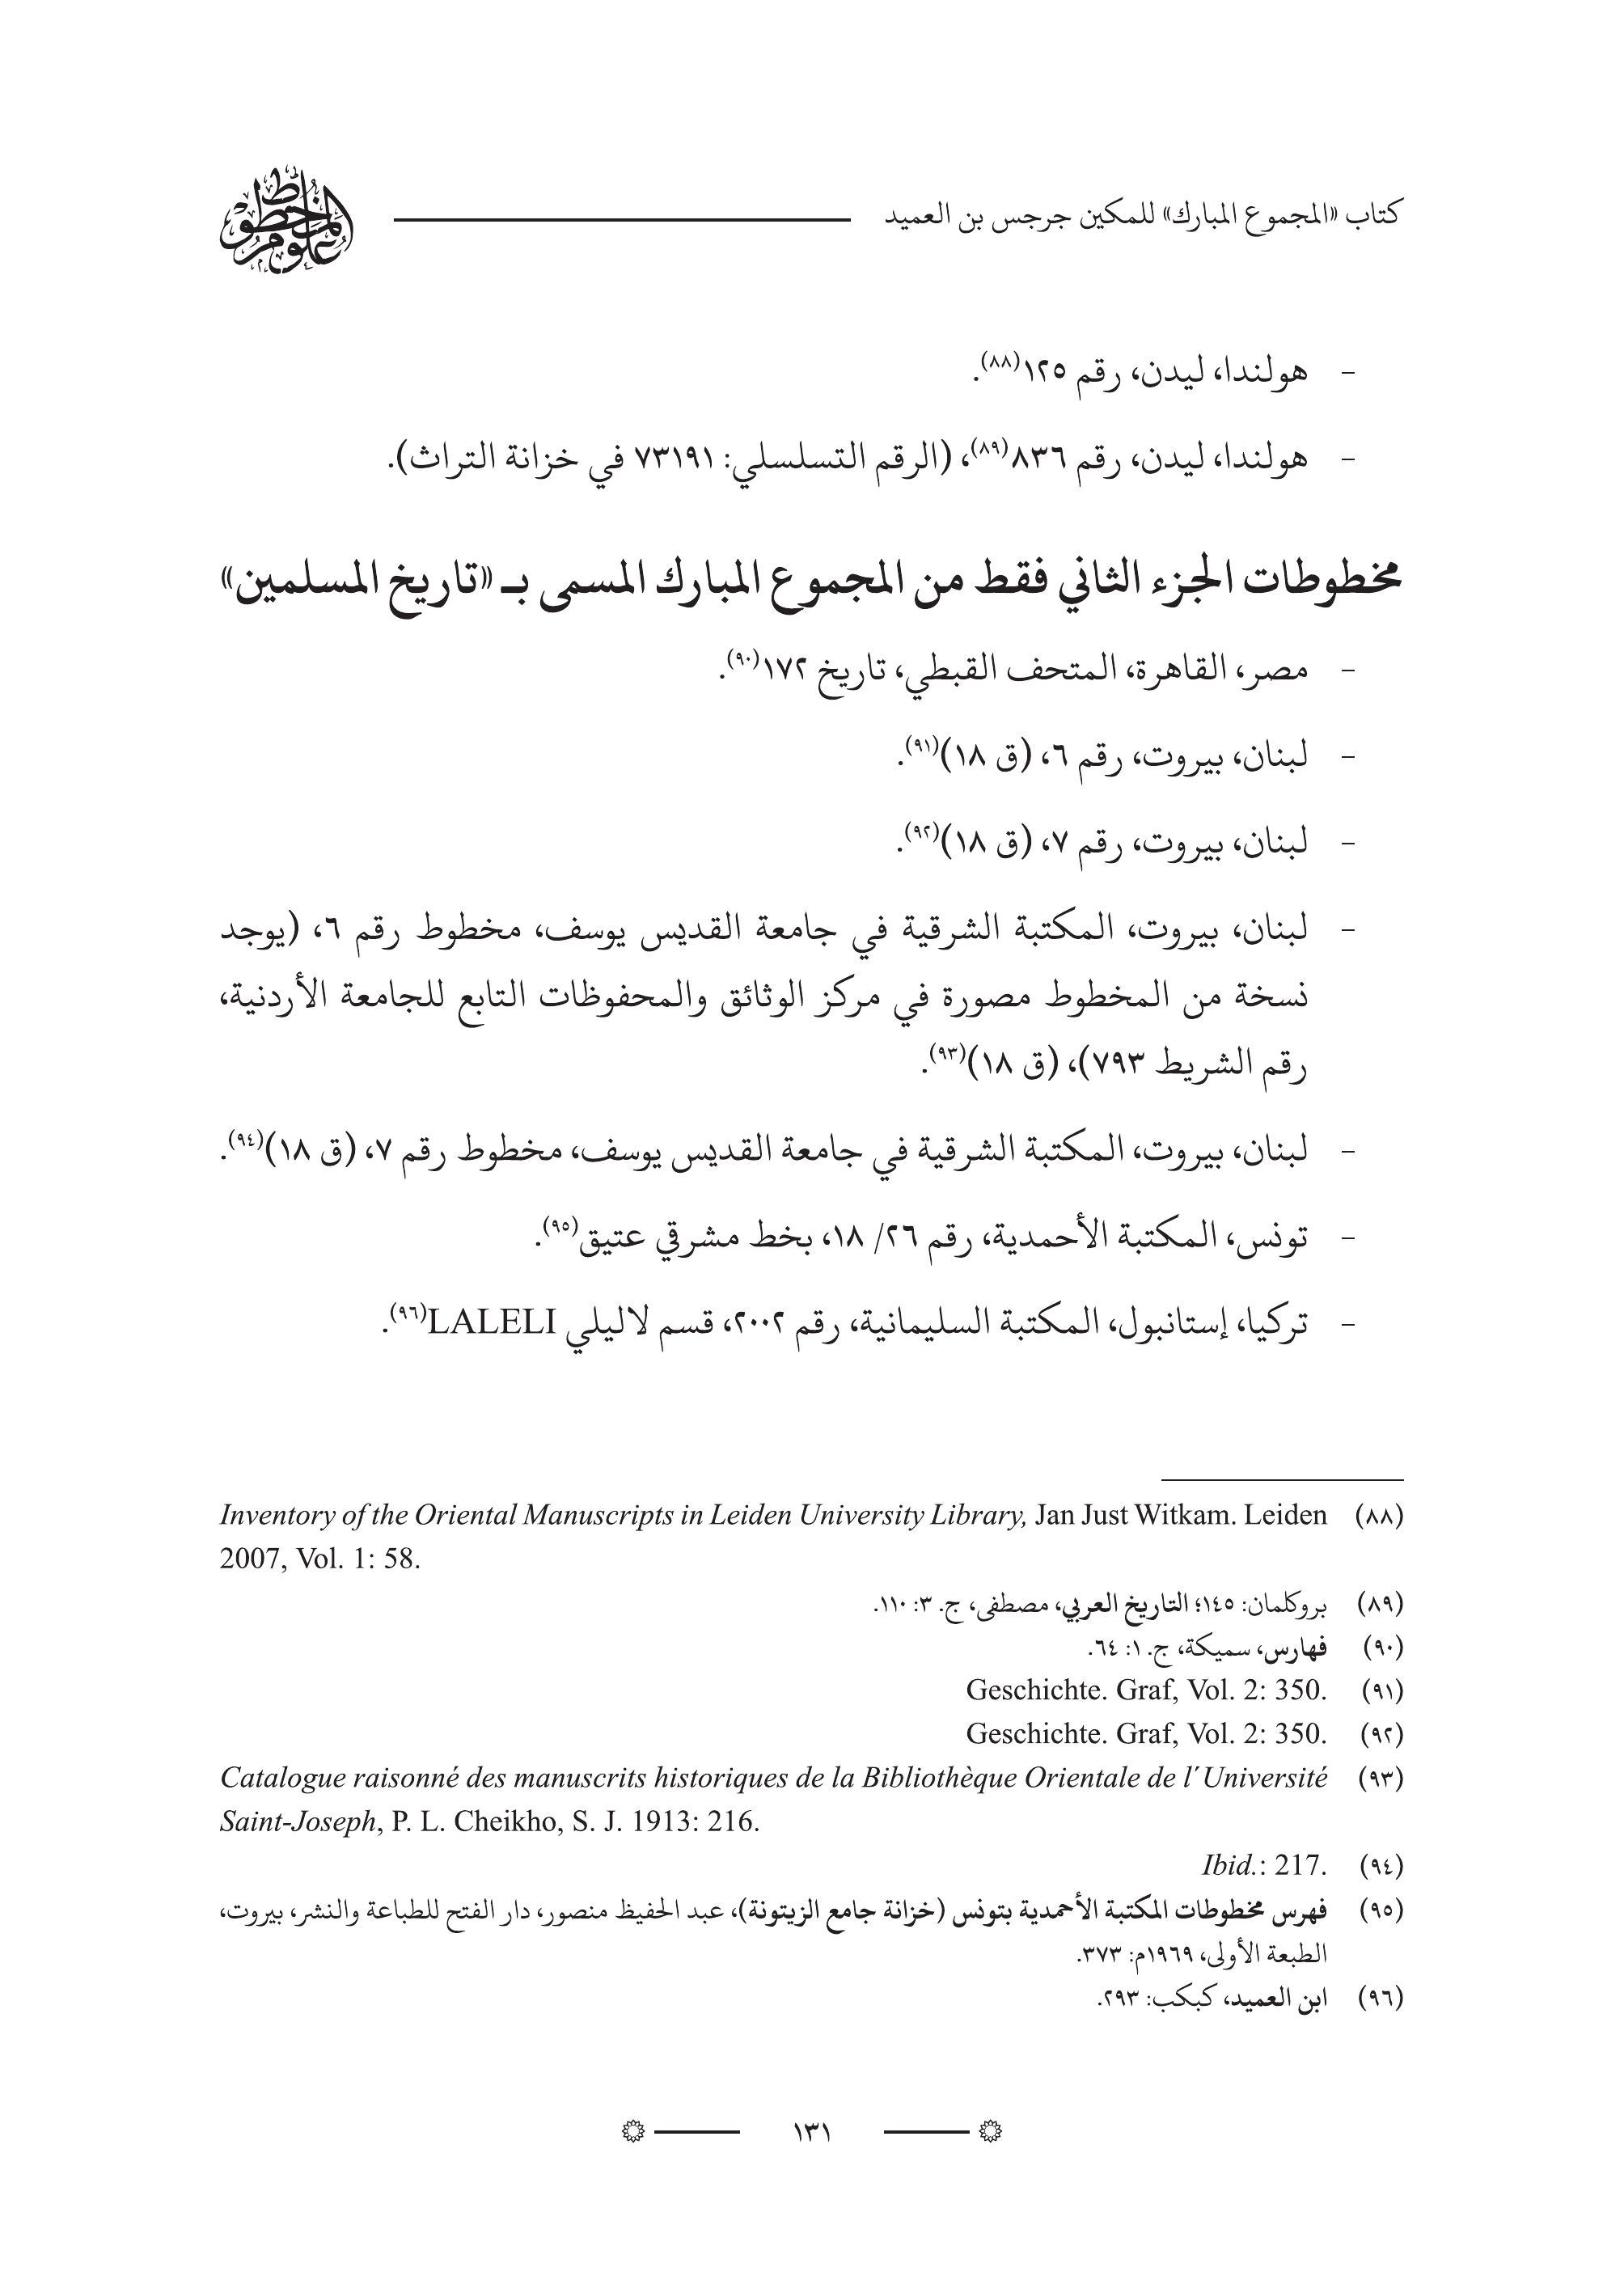 كتاب «المجموع المبارك» للمكين جرجس بن العميد
علوم المخطوط
- هولندا، ليدن، رقم ١٢٥(٨٨).
- هولندا، ليدن، رقم ٨٣٦(٨٩)، (الرقم التسلسلي: ٧٣١٩١ في خزانة التراث).
مخطوطات الجزء الثاني فقط من المجموع المبارك المسمى بـ «تاريخ المسلمين»
- مصر، القاهرة، المتحف القبطي، تاريخ ١٧٢(٩٠).
- لبنان، بيروت، رقم ٦، (ق ١٨)(٩١).
- لبنان، بيروت، رقم ٧، (ق ١٨)(٩٢).
- لبنان، بيروت، المكتبة الشرقية في جامعة القديس يوسف، مخطوط رقم ٦، (يوجد
نسخة من المخطوط مصورة في مركز الوثائق والمحفوظات التابع للجامعة الأردنية،
رقم الشريط ٧٩٣)، (ق ١٨)(٩٣).
- لبنان، بيروت، المكتبة الشرقية في جامعة القديس يوسف، مخطوط رقم ٧، (ق ١٨)(٩٤).
- تونس، المكتبة الأحمدية، رقم ٢٦/ ١٨، بخط مشرقي عتيق(٩٥).
- تركيا، إستانبول، المكتبة السليمانية، رقم ٢٠٠٢، قسم لاليلي LALELI(٩٦).
(٨٨) Inventory of the Oriental Manuscripts in Leiden University Library, Jan Just Witkam. Leiden
2007, Vol. 1: 58.
(٨٩) بروكلمان: ١٤٥؛ التاريخ العربي، مصطفى، ج. ٣: ١١٠.
(٩٠) فهارس، سميكة، ج. ١: ٦٤.
(٩١) Geschichte. Graf, Vol. 2: 350.
(٩٢) Geschichte. Graf, Vol. 2: 350.
(٩٣) Catalogue raisonné des manuscrits historiques de la Bibliothèque Orientale de l´Université
Saint-Joseph, P. L. Cheikho, S. J. 1913: 216.
(٩٤) Ibid.: 217.
(٩٥) فهرس مخطوطات المكتبة الأحمدية بتونس (خزانة جامع الزيتونة)، عبد الحفيظ منصور، دار الفتح للطباعة والنشر، بيروت،
الطبعة الأولى، ١٩٦٩م: ٣٧٣.
(٩٦) ابن العميد، كبكب: ٢٩٣.
١٣١